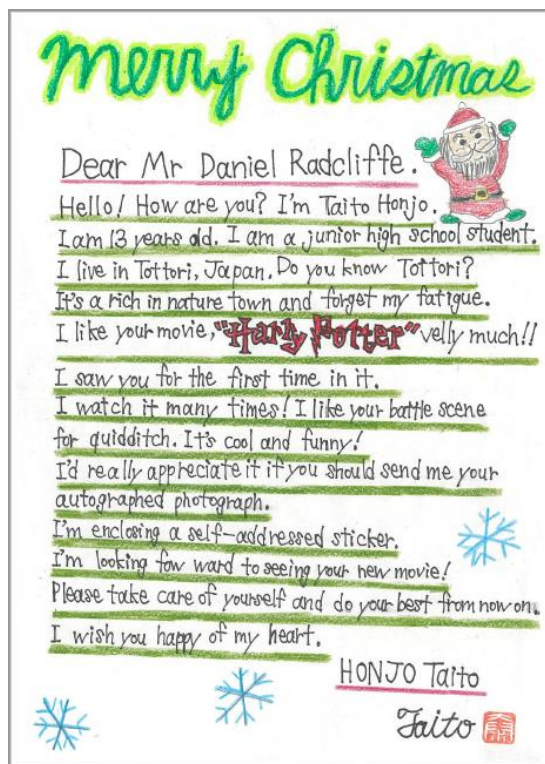 Merry Christmas
Dear Mr Daniel Radcliffe.
Hello! How are you? I'm Taito Honjo.
I am 13 years old. I am a junior high school student.
I live in Tottori, Japan. Do you know Tottori?
It's a rich in nature town and forget my fatigue.
I like your movie, "Harry Potter" velly much!!
I saw you for the first time in it.
I watch it many times! I like your battle scene
for quidditch. It's cool and funny!
I'd really appreciate it if you should send me your
autographed photograph.
I'm enclosing a self-addressed sticker.
I'm looking fow ward to seeing your new movie!
Please take care of yourself and do your best from now on.
I wish you happy of my heart.
HONJO Taito
Taito